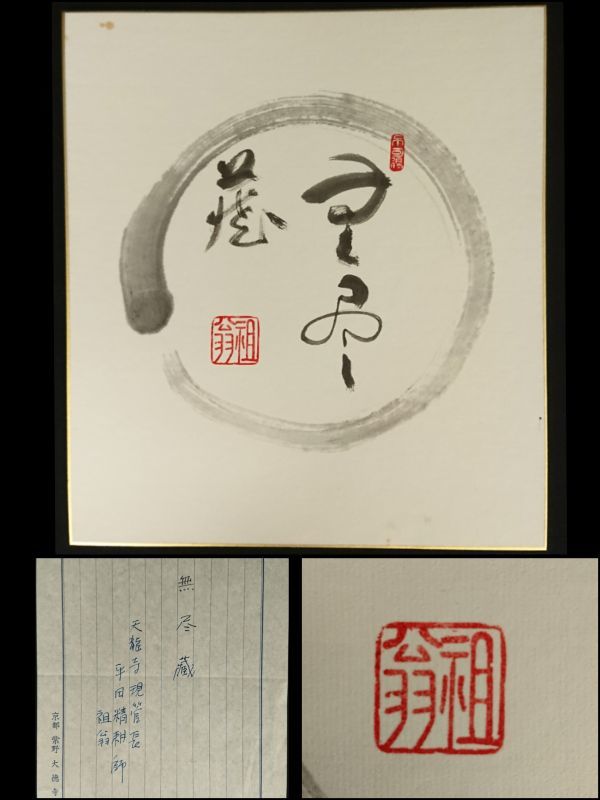 無尽
蔵
祖翁
無尽藏
天龍寺現管長
平田精耕師
祖翁
京都 紫野 大徳寺
祖翁